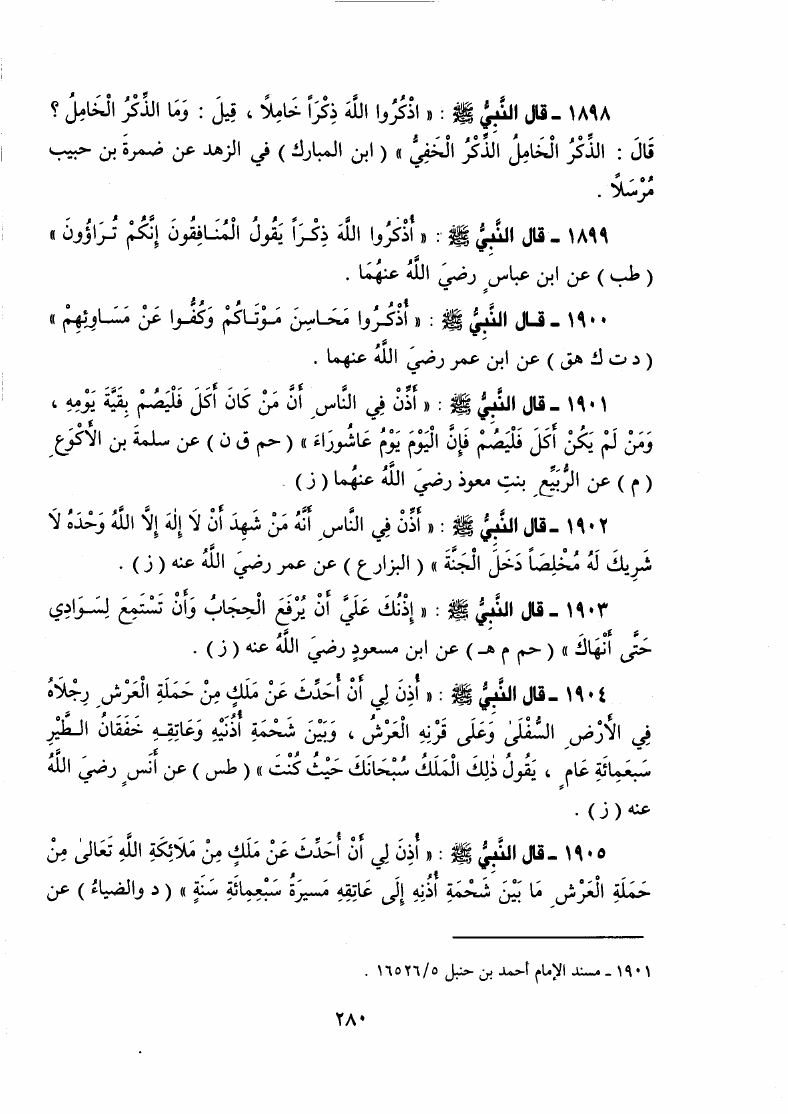 ١٨٩٨ - قال النَّبِيُّ ﷺ : « اذْكُرُوا اللَّهَ ذِكْرَاً خَامِلاً ، قِيلَ : وَمَا الذِّكْرُ الْخَامِلُ ؟
قَالَ : الذِّكْرُ الْخَامِلُ الذِّكْرُ الْخَفِيُّ » ( ابن المبارك ) في الزهد عن ضمرة بن حبيب
مُرْسَلاً .
١٨٩٩ - قال النَّبِيُّ ﷺ : « أُذْكُرُوا اللَّهَ ذِكْرَاً يَقُولُ الْمُنَافِقُونَ إِنَّكُمْ تُرَاؤُونَ »
( طب ) عن ابن عباسٍ رضيَ اللَّهُ عنهُمَا .
١٩٠٠ - قال النَّبِيُّ ﷺ : « أُذْكُرُوا مَحَاسِنَ مَوْتَاكُمْ وَكُفُّوا عَنْ مَسَاوِئِهِمْ »
( د ت ك هق ) عن ابن عمر رضيَ اللَّهُ عنهما .
١٩٠١ - قال النَّبِيُّ ﷺ : « أَذِّنْ فِي النَّاسِ أَنَّ مَنْ كَانَ أَكَلَ فَلْيَصُمْ بَقِيَّةَ يَوْمِهِ ،
وَمَنْ لَمْ يَكُنْ أَكَلَ فَلْيَصُمْ فَإِنَّ الْيَوْمَ يَوْمُ عَاشُورَاءَ » ( حم ق ن ) عن سلمةَ بن الأَكْوَعِ
( م ) عن الرُّبَيِّعِ بنتِ معوذ رضيَ اللَّهُ عنهُما ( ز ) .
١٩٠٢ - قال النَّبِيُّ ﷺ : « أَذِّنْ فِي النَّاسِ أَنَّهُ مَنْ شَهِدَ أَنْ لَا إِلٰهَ إِلَّا اللَّهُ وَحْدَهُ لَا
شَرِيكَ لَهُ مُخْلِصَاً دَخَلَ الْجَنَّةَ » ( البزار ع ) عن عمر رضيَ اللَّهُ عنه ( ز ) .
١٩٠٣ - قال النَّبِيُّ ﷺ : « إِذْنُكَ عَلَيَّ أَنْ يُرْفَعَ الْحِجَابُ وَأَنْ تَسْتَمِعَ لِسَوَادِي
حَتَّى أَنْهَاكَ » ( حم م هـ ) عن ابن مسعودٍ رضيَ اللَّهُ عنه ( ز ) .
١٩٠٤ - قال النَّبِيُّ ﷺ : « أُذِنَ لِي أَنْ أُحَدِّثَ عَنْ مَلَكٍ مِنْ حَمَلَةِ الْعَرْشِ رِجْلَاهُ
فِي الأَرْضِ السُّفْلَىٰ وَعَلَى قَرْنِهِ الْعَرْشُ ، وَبَيْنَ شَحْمَةِ أُذُنَيْهِ وَعَاتِقِهِ خَفَقَانُ الطَّيْرِ
سَبْعَمِائَةِ عَامٍ ، يَقُولُ ذٰلِكَ الْمَلَكُ سُبْحَانَكَ حَيْثُ كُنْتَ » ( طس ) عن أنسٍ رضيَ اللَّهُ
عنه ( ز ) .
١٩٠٥ - قال النَّبِيُّ ﷺ : « أُذِنَ لِي أَنْ أُحَدِّثَ عَنْ مَلَكٍ مِنْ مَلَائِكَةِ اللَّهِ تَعَالىٰ مِنْ
حَمَلَةِ الْعَرْشِ مَا بَيْنَ شَحْمَةِ أُذُنِهِ إِلَى عَاتِقِهِ مَسِيرَةُ سَبْعِمِائَةِ سَنَةٍ » ( د والضياءُ ) عن
١٩٠١ - مسند الإمام أحمد بن حنبل ١٦٥٢٦/٥ .
٢٨٠